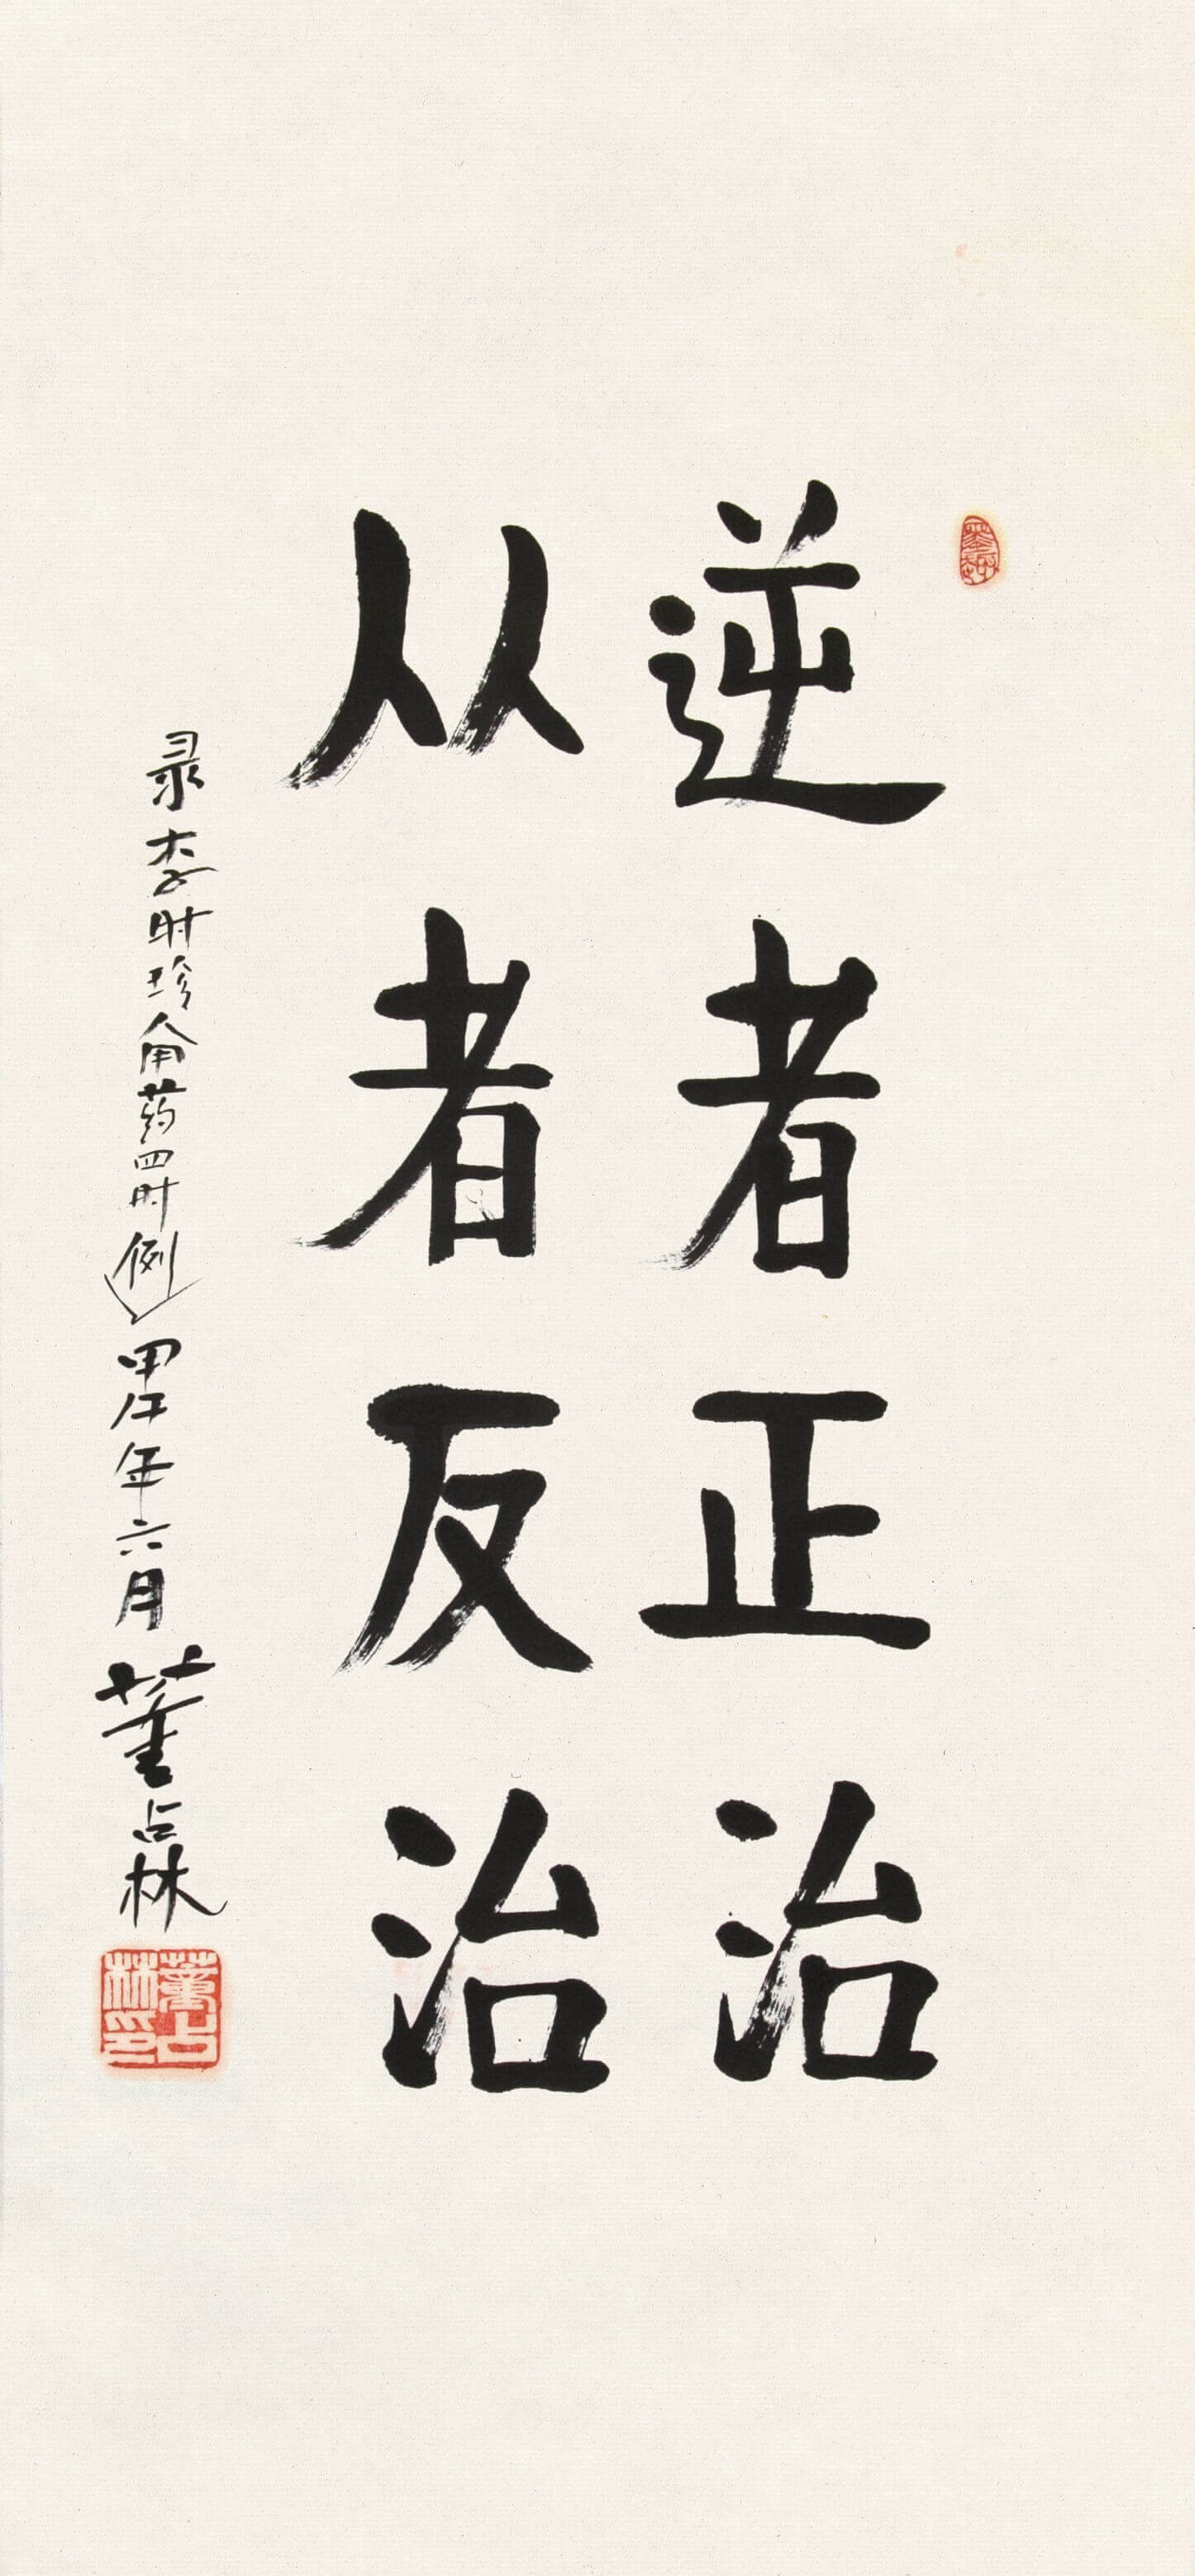 逆者正治
从者反治
录李时珍用药四时例
甲午年六月 董占林
董占林印